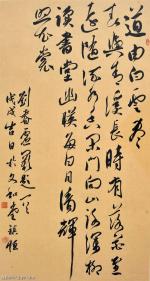 道由白云盡
春與青溪長時有落花至
遠隨流水香閑門向山路深柳
讀書堂幽映每白日清輝
照衣裳
劉眘虛闕題
戊戌 生日於文和堂